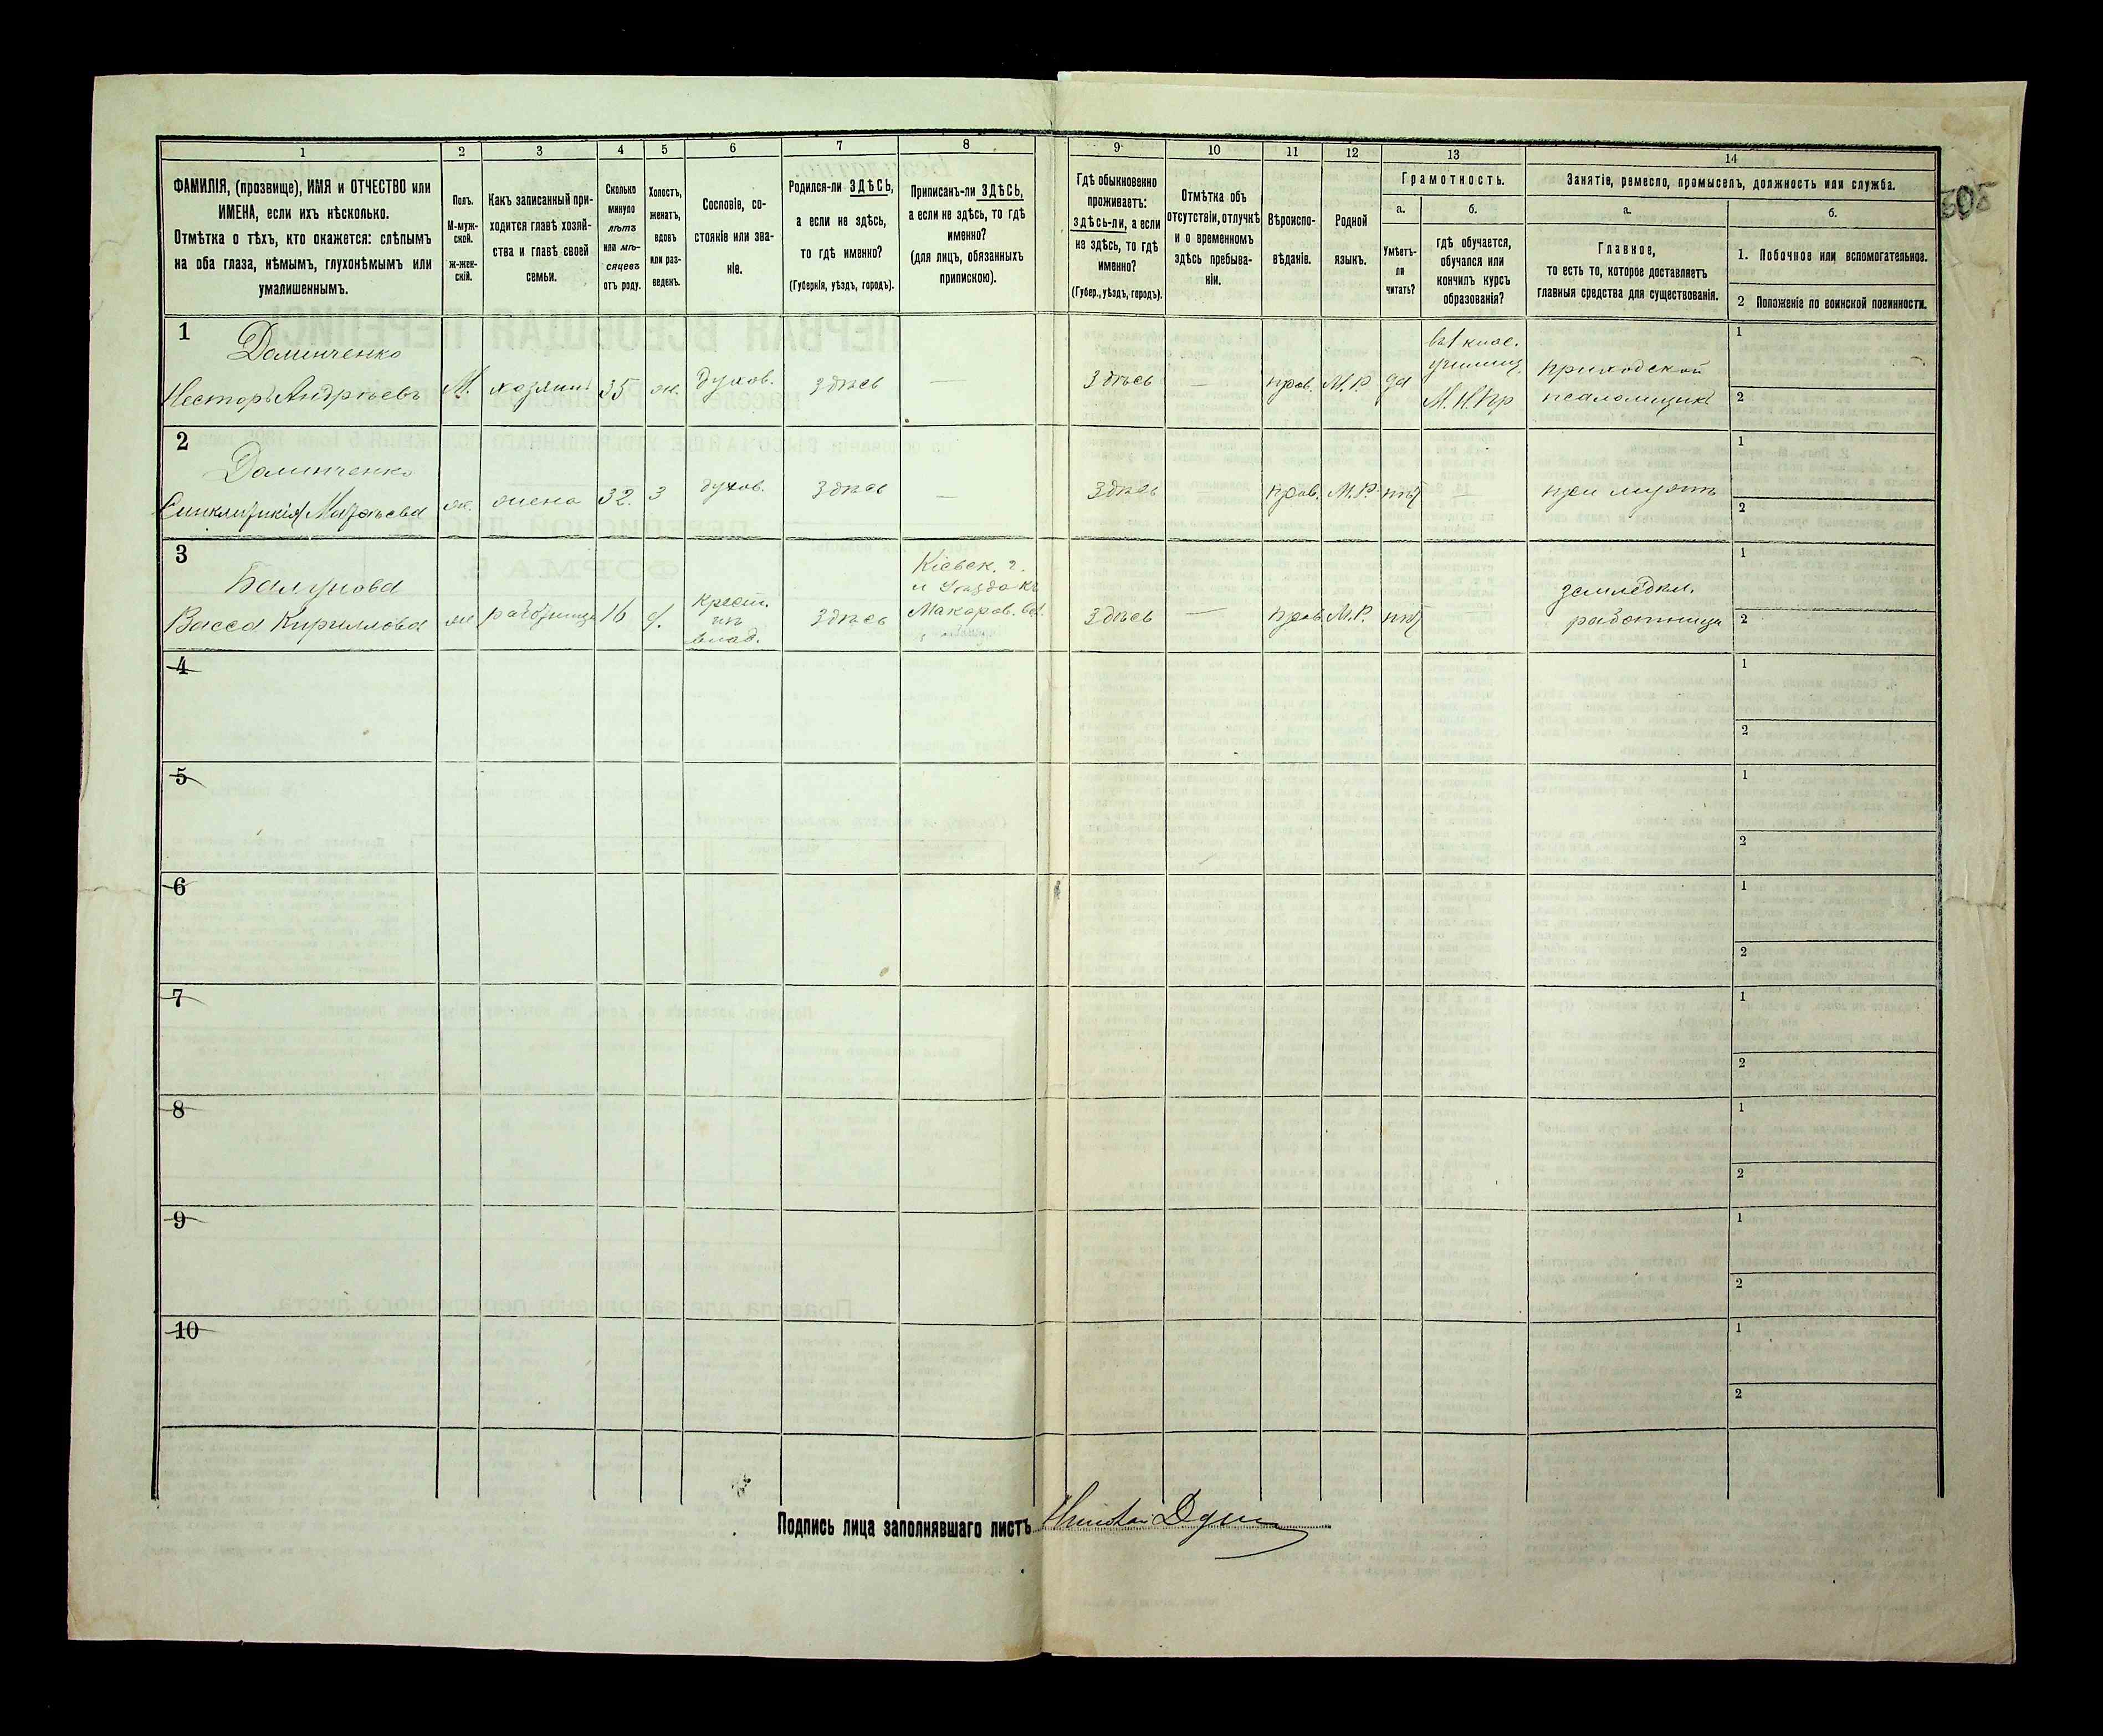 1 2 3 4 5 6 7 8 9 10 11 12 13 14
ФАМИЛІЯ, (прозвище), ИМЯ и ОТЧЕСТВО или
ИМЕНА, если ихъ нѣсколько.
Отмѣтка о тѣхъ, кто окажется: слѣпымъ
на оба глаза, нѣмымъ, глухонѣмымъ или
умалишеннымъ.
Полъ.
М-муж-
ской.
ж-жен-
скій.
Какъ записанный при-
ходится главѣ хозяй-
ства и главѣ своей
семьи.
Сколько
минуло
лѣтъ
или мѣ-
сяцевъ
отъ роду.
Холостъ,
женатъ,
вдовъ
или раз-
веденъ.
Сословіе, со-
стояніе или зва-
ніе.
Родился-ли ЗДѢСЬ,
а если не здѣсь,
то гдѣ именно?
(Губернія, уѣздъ, городъ).
Приписанъ-ли ЗДѢСЬ,
а если не здѣсь, то гдѣ
именно?
(для лицъ, обязанныхъ
припискою).
Гдѣ обыкновенно
проживаетъ:
здѣсь-ли, а если
не здѣсь, то гдѣ
именно?
(Губер., уѣздъ, городъ).
Отмѣтка объ
отсутствіи, отлучкѣ
и о временномъ
здѣсь пребыва-
ніи.
Вѣроиспо-
вѣданіе.
Родной
языкъ.
Грамотность.
а.
Умѣетъ-
ли
читать?
б.
гдѣ обучается,
обучался или
кончилъ курсъ
образованія?
Занятіе, ремесло, промыселъ, должность или служба.
а.
Главное,
то есть то, которое доставляетъ
главныя средства для существованія.
б.
1. Побочное или вспомогательное.
2 Положеніе по воинской повинности.
508
1
Долинченко
Несторъ Андрѣевъ М. хозяинъ 35 ж. духов. здѣсь — здѣсь — прав. М.Р. да
в 1 клас.
училищ.
М. Н. Пр
приходской
псаломщикъ
1
2
2
Долинченко
Синклитикія Матѳѣева ж. жена 32 з духов. здѣсь — здѣсь — прав. М.Р. нѣт — при мужѣ
1
2
3
Васса Кириллова ж работница 16 д.
крест.
изъ
влад.
здѣсь
Кіевск. г.
и уѣзда
Макаров. вол.
здѣсь — прав. М.Р. нѣт
земледѣл.
работница
1
2
4 1
2
5 1
2
6 1
2
7 1
2
8 1
2
9 1
2
10 1
2
Подпись лица заполнявшаго листъ